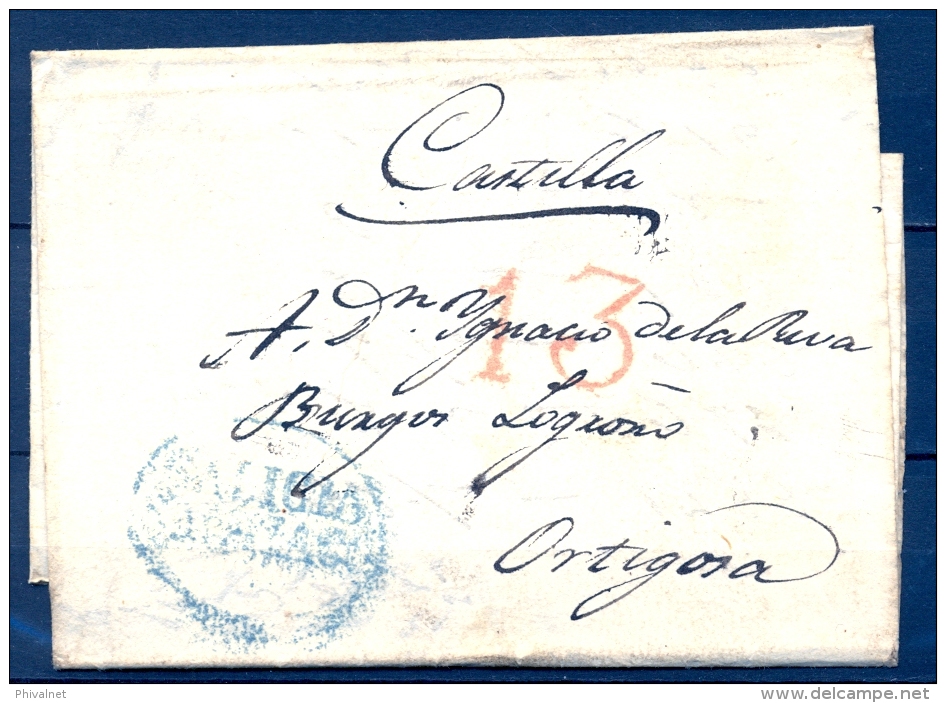 Castilla
13
A, Dn. Ygnacio de la Riva
Burgos Logroño
Ortigosa
Phivalnet
www.delcampe.net